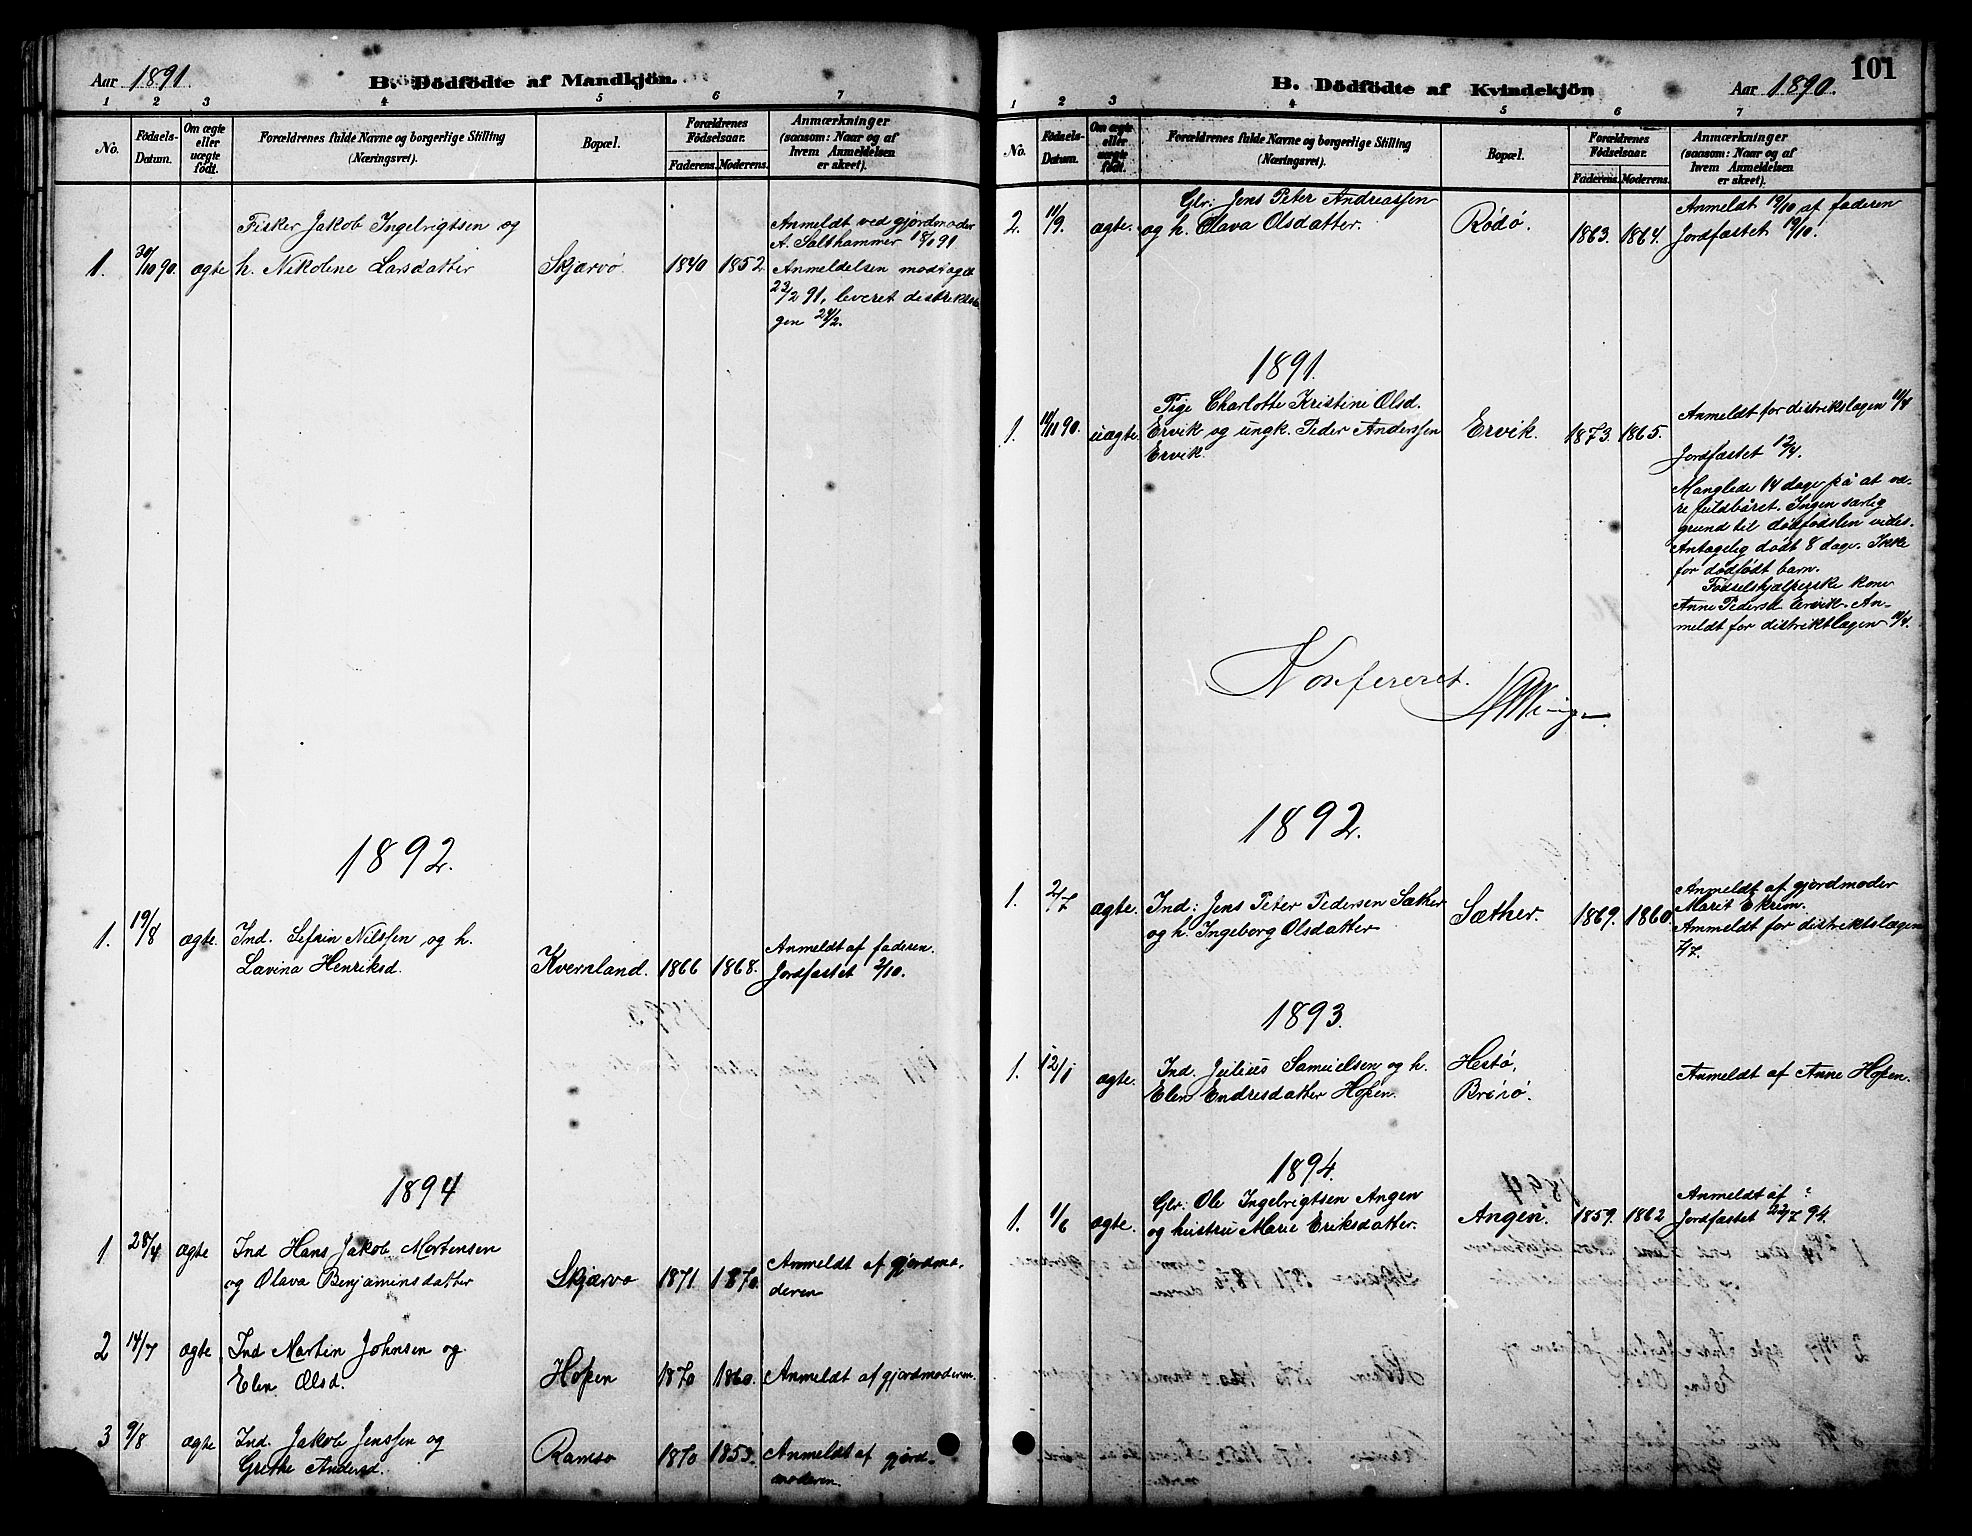 Aar 1891
B. Dödfödte af Mandkjön.
1 2 3 4 5 6 7
No.
Fødsels-Datum.
Om ægte eller uægte født.
Forældrenes fulde Navne og borgerlige Stilling (Næringsvei).
Bopæl.
Forældrenes Fødselsaar.
Faderens. Moderens.
Anmærkninger (saasom: Naar og af hvem Anmeldelsen er skeet).
Fisker Jakob Ingebrigtsen og
h. Nikoline Larsdatter
1. 30/10 90. ægte Skjærvø. 1840 1852
Anmeldt ved gjordemoder
A. Salthammer
Anmeldelsen modtaget
23/2 91, leveret distriktslæ
gen 24/2.
1892.
1. 19/8 ægte. Ind. Sefrin Nilssen og h.
Lavina Henriksd. Kvernland. 1866 1868.
Anmeldt af faderen.
Jordfæstet 2/10.
1894
1 28/4 ægte Ind Hans Jakob Mortensen
og Olava Benjaminsdatter Skjærvø 1871 1870.
Anmeldt af gjordmo-
deren
2 14/7 ægte. Ind Martin Johnsen og
Elen Olsd. Hopen 1870 1860. Anmeldt af gjordmoderen.
3 9/8 ægte Ind. Jakob Jenssen og
Grethe Andersd. Ramsø 1870 1853.
Anmeldt af gjord-
moderen.
101
B. Dödfödte af Kvindekjön
Aar 1890.
1 2 3 4 5 6 7
No.
Fødsels-Datum.
Om ægte eller uægte født.
Forældrenes fulde Navne og borgerlige Stilling (Næringsvei).
Bopæl.
Forældrenes Fødselsaar.
Faderens. Moderens.
Anmærkninger (saasom: Naar og af hvem Anmeldelsen er skeet).
Gbr: Jens Peter Andreassen
2. 11/9. ægte. og h. Olava Olsdatter. Rødø. 1863. 1864.
Anmeldt 19/10 af faderen
Jordfæstet 19/10.
1891.
Pige Charlotte Kristine Olsd.
1. 11/11 90. uægte. Ervik og ungk. Peder Anderssen Ervik. 1873. 1865.
Ervik.
Anmeldt for distriktslægen 11/4
Jordfæstet 12/4.
Manglede 14 dage på at væ-
re fuldbåret. Ingen særlig
grund til dødfødslen vides.
Antagelig dødt 8 dage. Ikke
før dødfødt barn.
Fødselshjælperske kone
Anne Pedersd. Ervik. An-
meldt for distriktlægen 11/4.
Konfereret.
1892.
1. 2/7 ægte. Ind: Jens Peter Pedersen Sæther
og h. Ingeborg Olsdatter Sæther. 1869. 1860.
Anmeldt af gjordmoder
Marit Ekrem.
Anmeldt for distriktslægen
4/7.
1893.
1. 12/1 ægte. Ind. Julius Samuelsen og h.
Elen Endresdatter Hopen. Hestø,
Brørø.
Anmeldt af Anne Hopen.
1894.
1. 1/6 ægte. Gbr: Ole Ingebrigtsen Angen
og hustru Marie Eriksdatter. Angen. 1859. 1862
Anmeldt af ?
Jordfæstet 22/7 94.